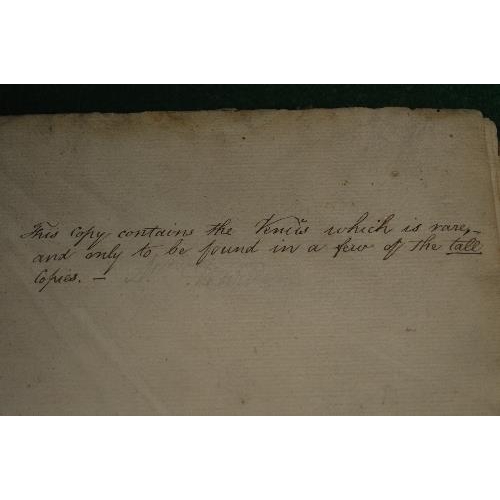 This Copy contains the Venus which is rare,–
and only to be found in a few of the tall
Copies. –